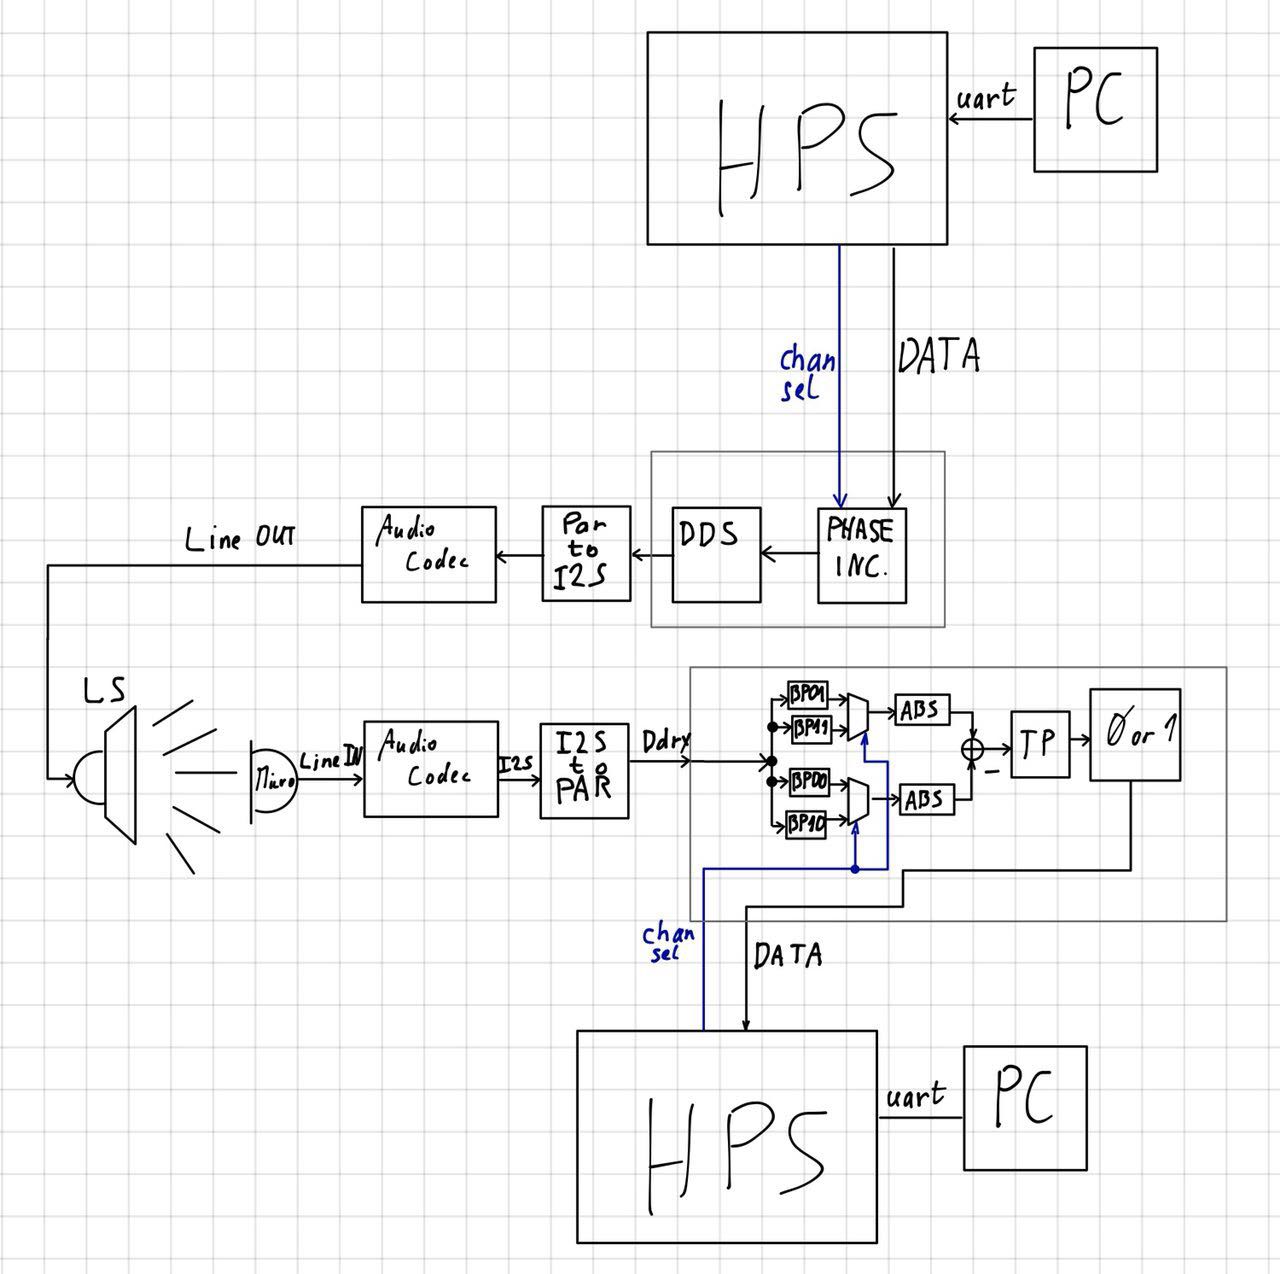 HPS
uart
PC
chan
sel
DATA
Line OUT
Audio
Codec
Par
to
I2S
DDS
PHASE
INC.
LS
Micro
Line IN
Audio
Codec
I2S
I2S
to
PAR
Ddry
BP01
BP11
BP00
BP10
ABS
ABS
−
TP
0 or 1
chan
sel
DATA
HPS
uart
PC